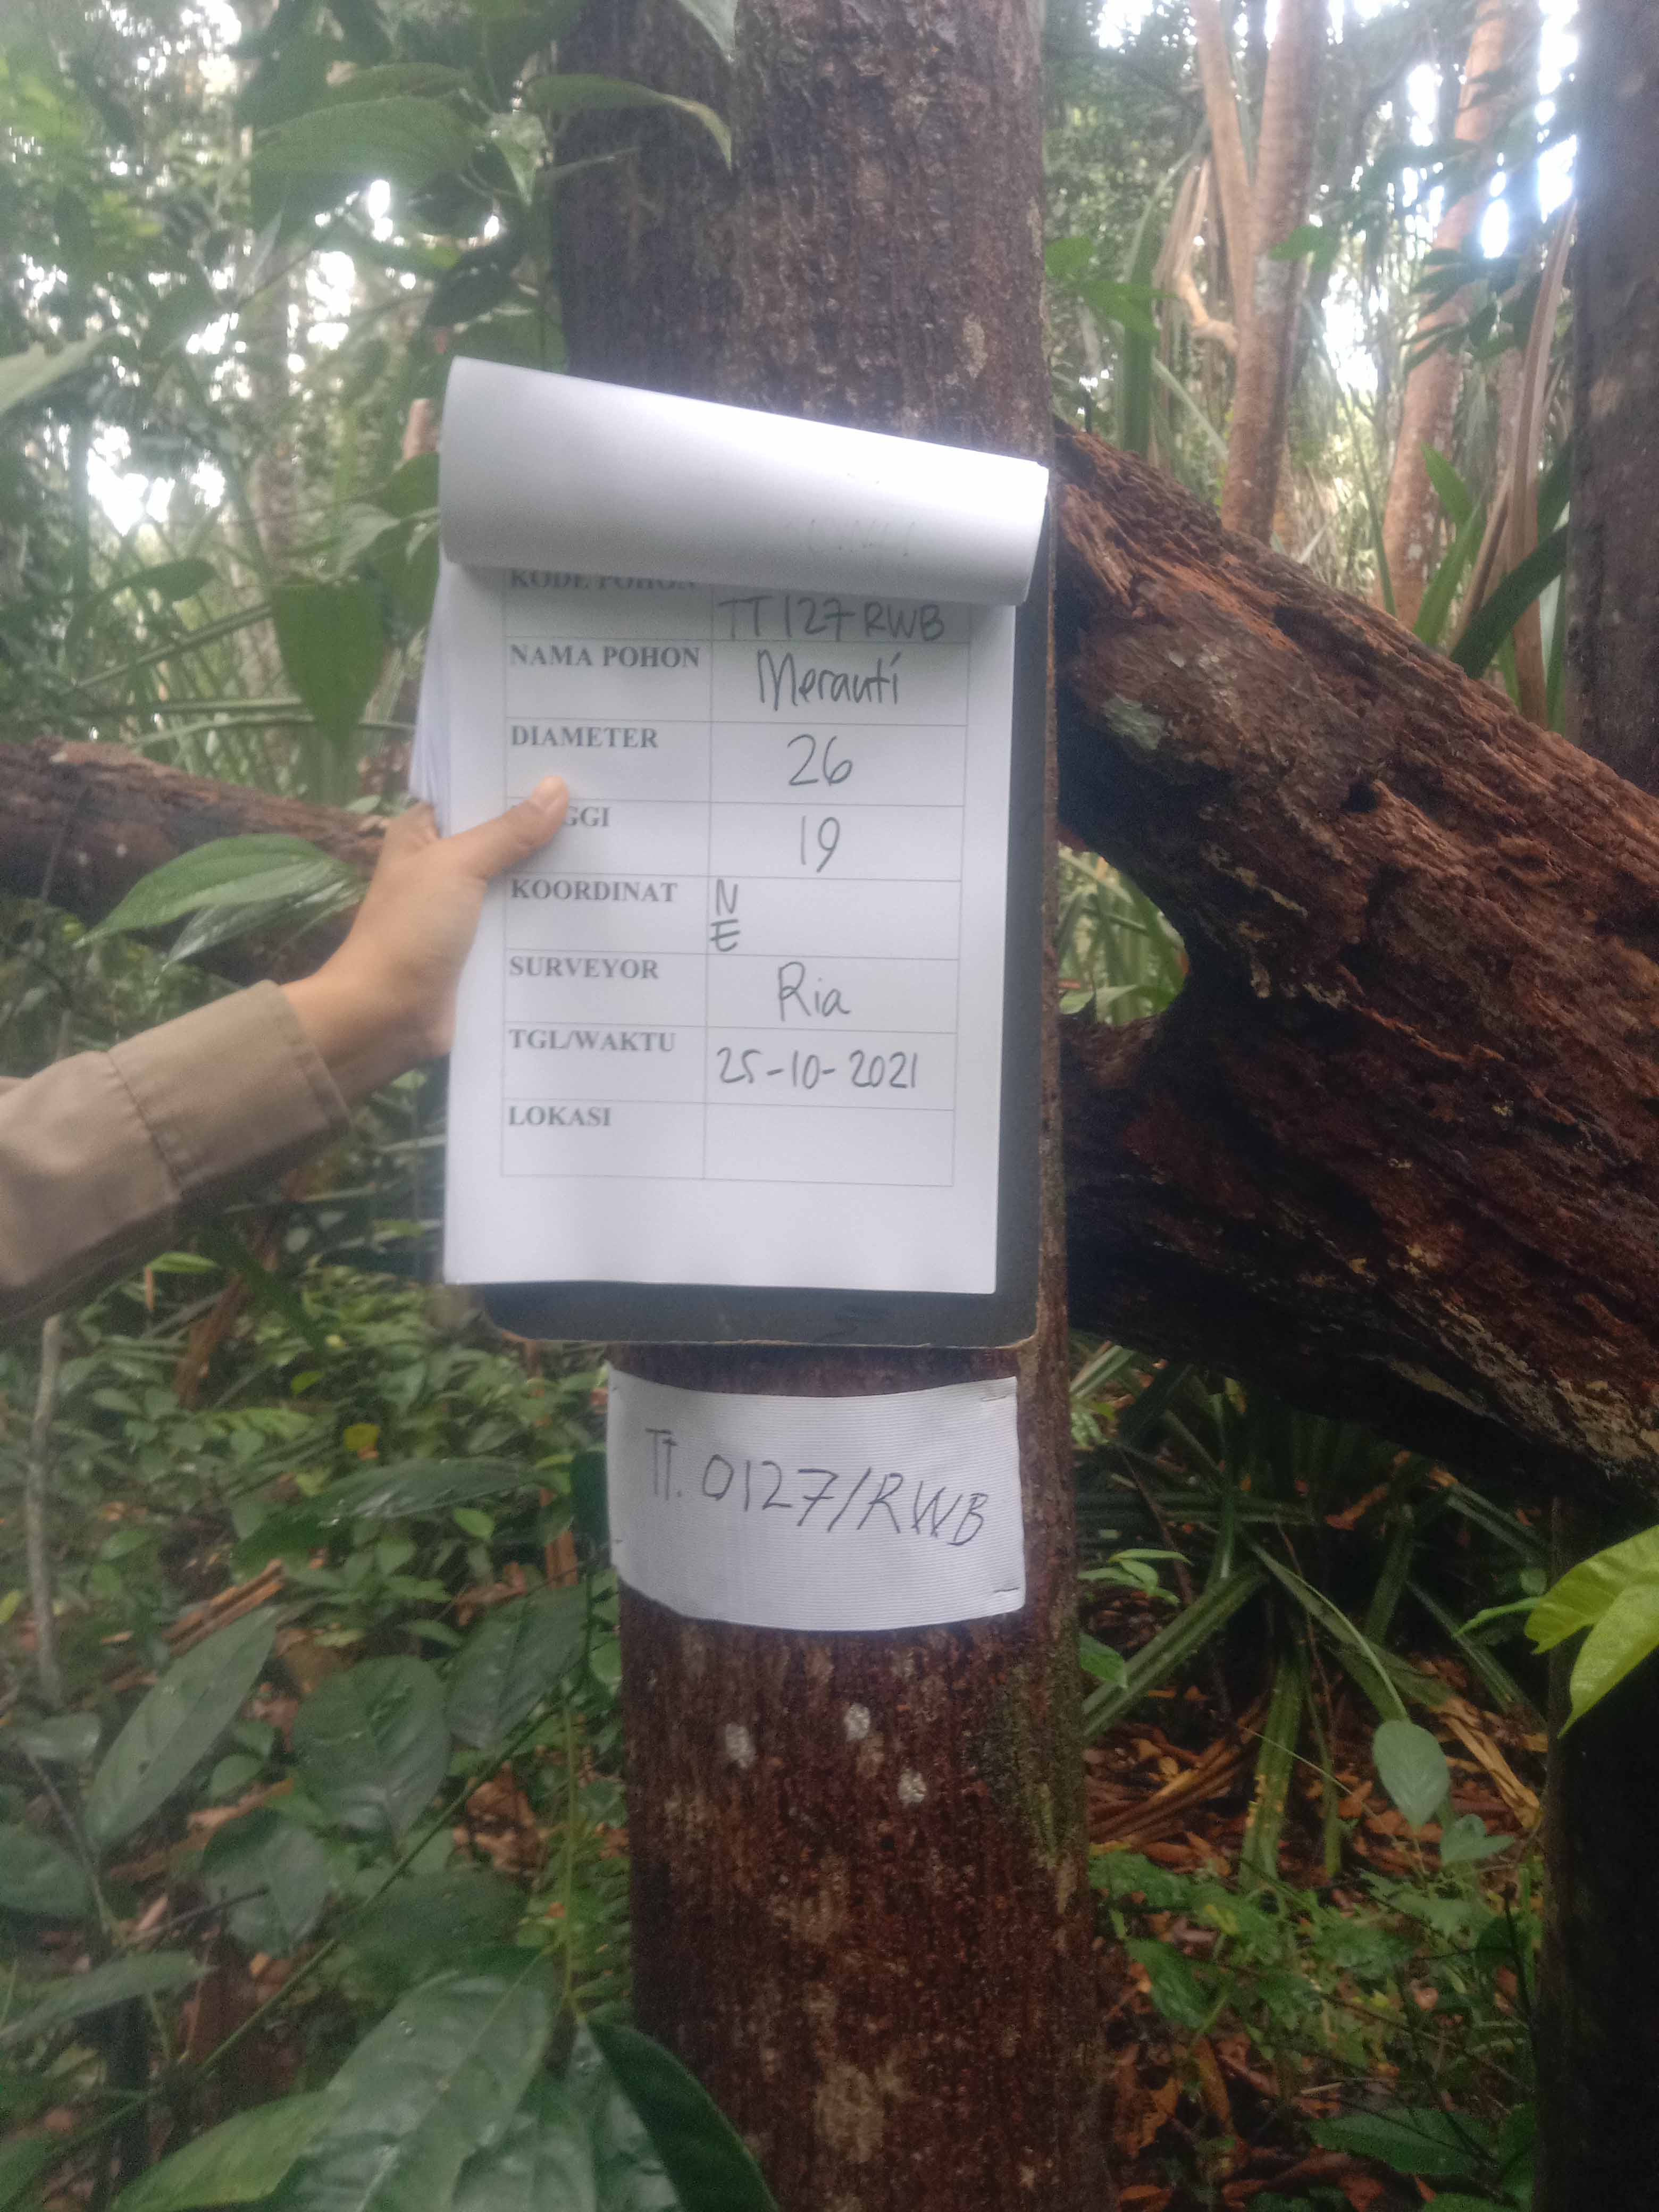 KODE POHON
TT 127 RWB
NAMA POHON Merauti
DIAMETER 26
GGI 19
KOORDINAT N
E
SURVEYOR Ria
TGL/WAKTU 25-10-2021
LOKASI
TT. 0127/RWB